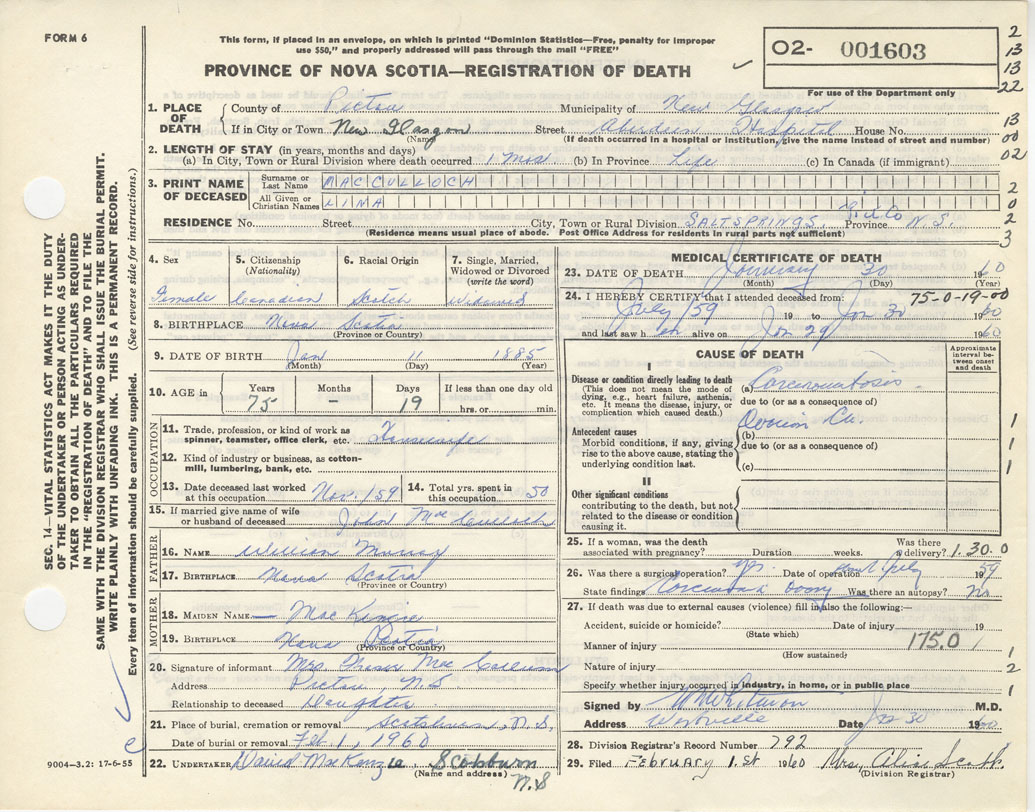 FORM 6
This form, if placed in an envelope, on which is printed "Dominion Statistics—Free, penalty for improper
use $50," and properly addressed will pass through the mail "FREE"
PROVINCE OF NOVA SCOTIA—REGISTRATION OF DEATH
02- 001603
For use of the Department only
2
13
13
22
13
00
02
2
0
2
3
SEC. 14—VITAL STATISTICS ACT MAKES IT THE DUTY
OF THE UNDERTAKER OR PERSON ACTING AS UNDER-
TAKER TO OBTAIN ALL THE PARTICULARS REQUIRED
IN THE "REGISTRATION OF DEATH" AND TO FILE THE
SAME WITH THE DIVISION REGISTRAR WHO SHALL ISSUE THE BURIAL PERMIT.
WRITE PLAINLY WITH UNFADING INK. THIS IS A PERMANENT RECORD.
Every item of information should be carefully supplied. (See reverse side for instructions.)
1. PLACE OF DEATH { County of Pictou Municipality of New Glasgow
If in City or Town New Glasgow (Name) Street Aberdeen Hospital House No.
(If death occurred in a hospital or institution, give the name instead of street and number)
2. LENGTH OF STAY (in years, months and days)
(a) In City, Town or Rural Division where death occurred 1 Mos. (b) In Province Life (c) In Canada (if immigrant)
3. PRINT NAME OF DECEASED
Surname or Last Name MACCULLOCH
All Given or Christian Names LIMA
RESIDENCE No. Street City, Town or Rural Division SALTSPRINGS, Pictou Co Province N.S.
(Residence means usual place of abode. Post Office Address for residents in rural parts not sufficient)
4. Sex Female
5. Citizenship (Nationality) Canadian
6. Racial Origin Scotch
7. Single, Married, Widowed or Divorced (write the word) Widowed
8. BIRTHPLACE Nova Scotia
(Province or Country)
9. DATE OF BIRTH Jan 11 1885
(Month) (Day) (Year)
10. AGE in Years 75 Months — Days 19 If less than one day old hrs. or min.
OCCUPATION
11. Trade, profession, or kind of work as spinner, teamster, office clerk, etc. Housewife
12. Kind of industry or business, as cotton-mill, lumbering, bank, etc.
13. Date deceased last worked at this occupation Nov. 159
14. Total yrs. spent in this occupation 50
15. If married give name of wife or husband of deceased John MacCulloch
FATHER
16. NAME William Murray
17. BIRTHPLACE Nova Scotia
(Province or Country)
MOTHER
18. MAIDEN NAME MacKenzie
19. BIRTHPLACE Nova Scotia
(Province or Country)
20. Signature of informant Mrs.
Address Pictou N.S
Relationship to deceased Daughter
21. Place of burial, cremation or removal N.S.
Date of burial or removal Feb. 1, 1960
22. UNDERTAKER David MacKenzie Scotsburn
(Name and address) N.S
9004—3.2: 17-6-55
MEDICAL CERTIFICATE OF DEATH
23. DATE OF DEATH January 30 1960
(Month) (Day) (Year)
75-0-19-00
24. I HEREBY CERTIFY that I attended deceased from:
July 159 19 to Jan 30 1960
and last saw h er alive on Jan 29 1960
CAUSE OF DEATH
Approximate interval between onset and death
I
Disease or condition directly leading to death
(This does not mean the mode of dying, e.g., heart failure, asthenia, etc. It means the disease, injury, or complication which caused death.)
(a) Carcinomatosis
due to (or as a consequence of)
Antecedent causes
Morbid conditions, if any, giving rise to the above cause, stating the underlying condition last.
Ovarian Ca.
(b)
due to (or as a consequence of)
(c)
II
Other significant conditions contributing to the death, but not related to the disease or condition causing it.
1
1
1
25. If a woman, was the death associated with pregnancy? Duration weeks. Was there a delivery? 1.30.0
26. Was there a surgical operation? yes. Date of operation July 1959
State findings Carcinoma ovary Was there an autopsy? No
27. If death was due to external causes (violence) fill in also the following:—
Accident, suicide or homicide? (State which) Date of injury 19
Manner of injury 175.0
(How sustained)
Nature of injury
Specify whether injury occurred in industry, in home, or in public place
1
1
2
1
Signed by M.D.
Address Westville Date Jan 30 1960
28. Division Registrar's Record Number 792
29. Filed February 1st 1960 Mrs. Alice Scott
(Division Registrar)